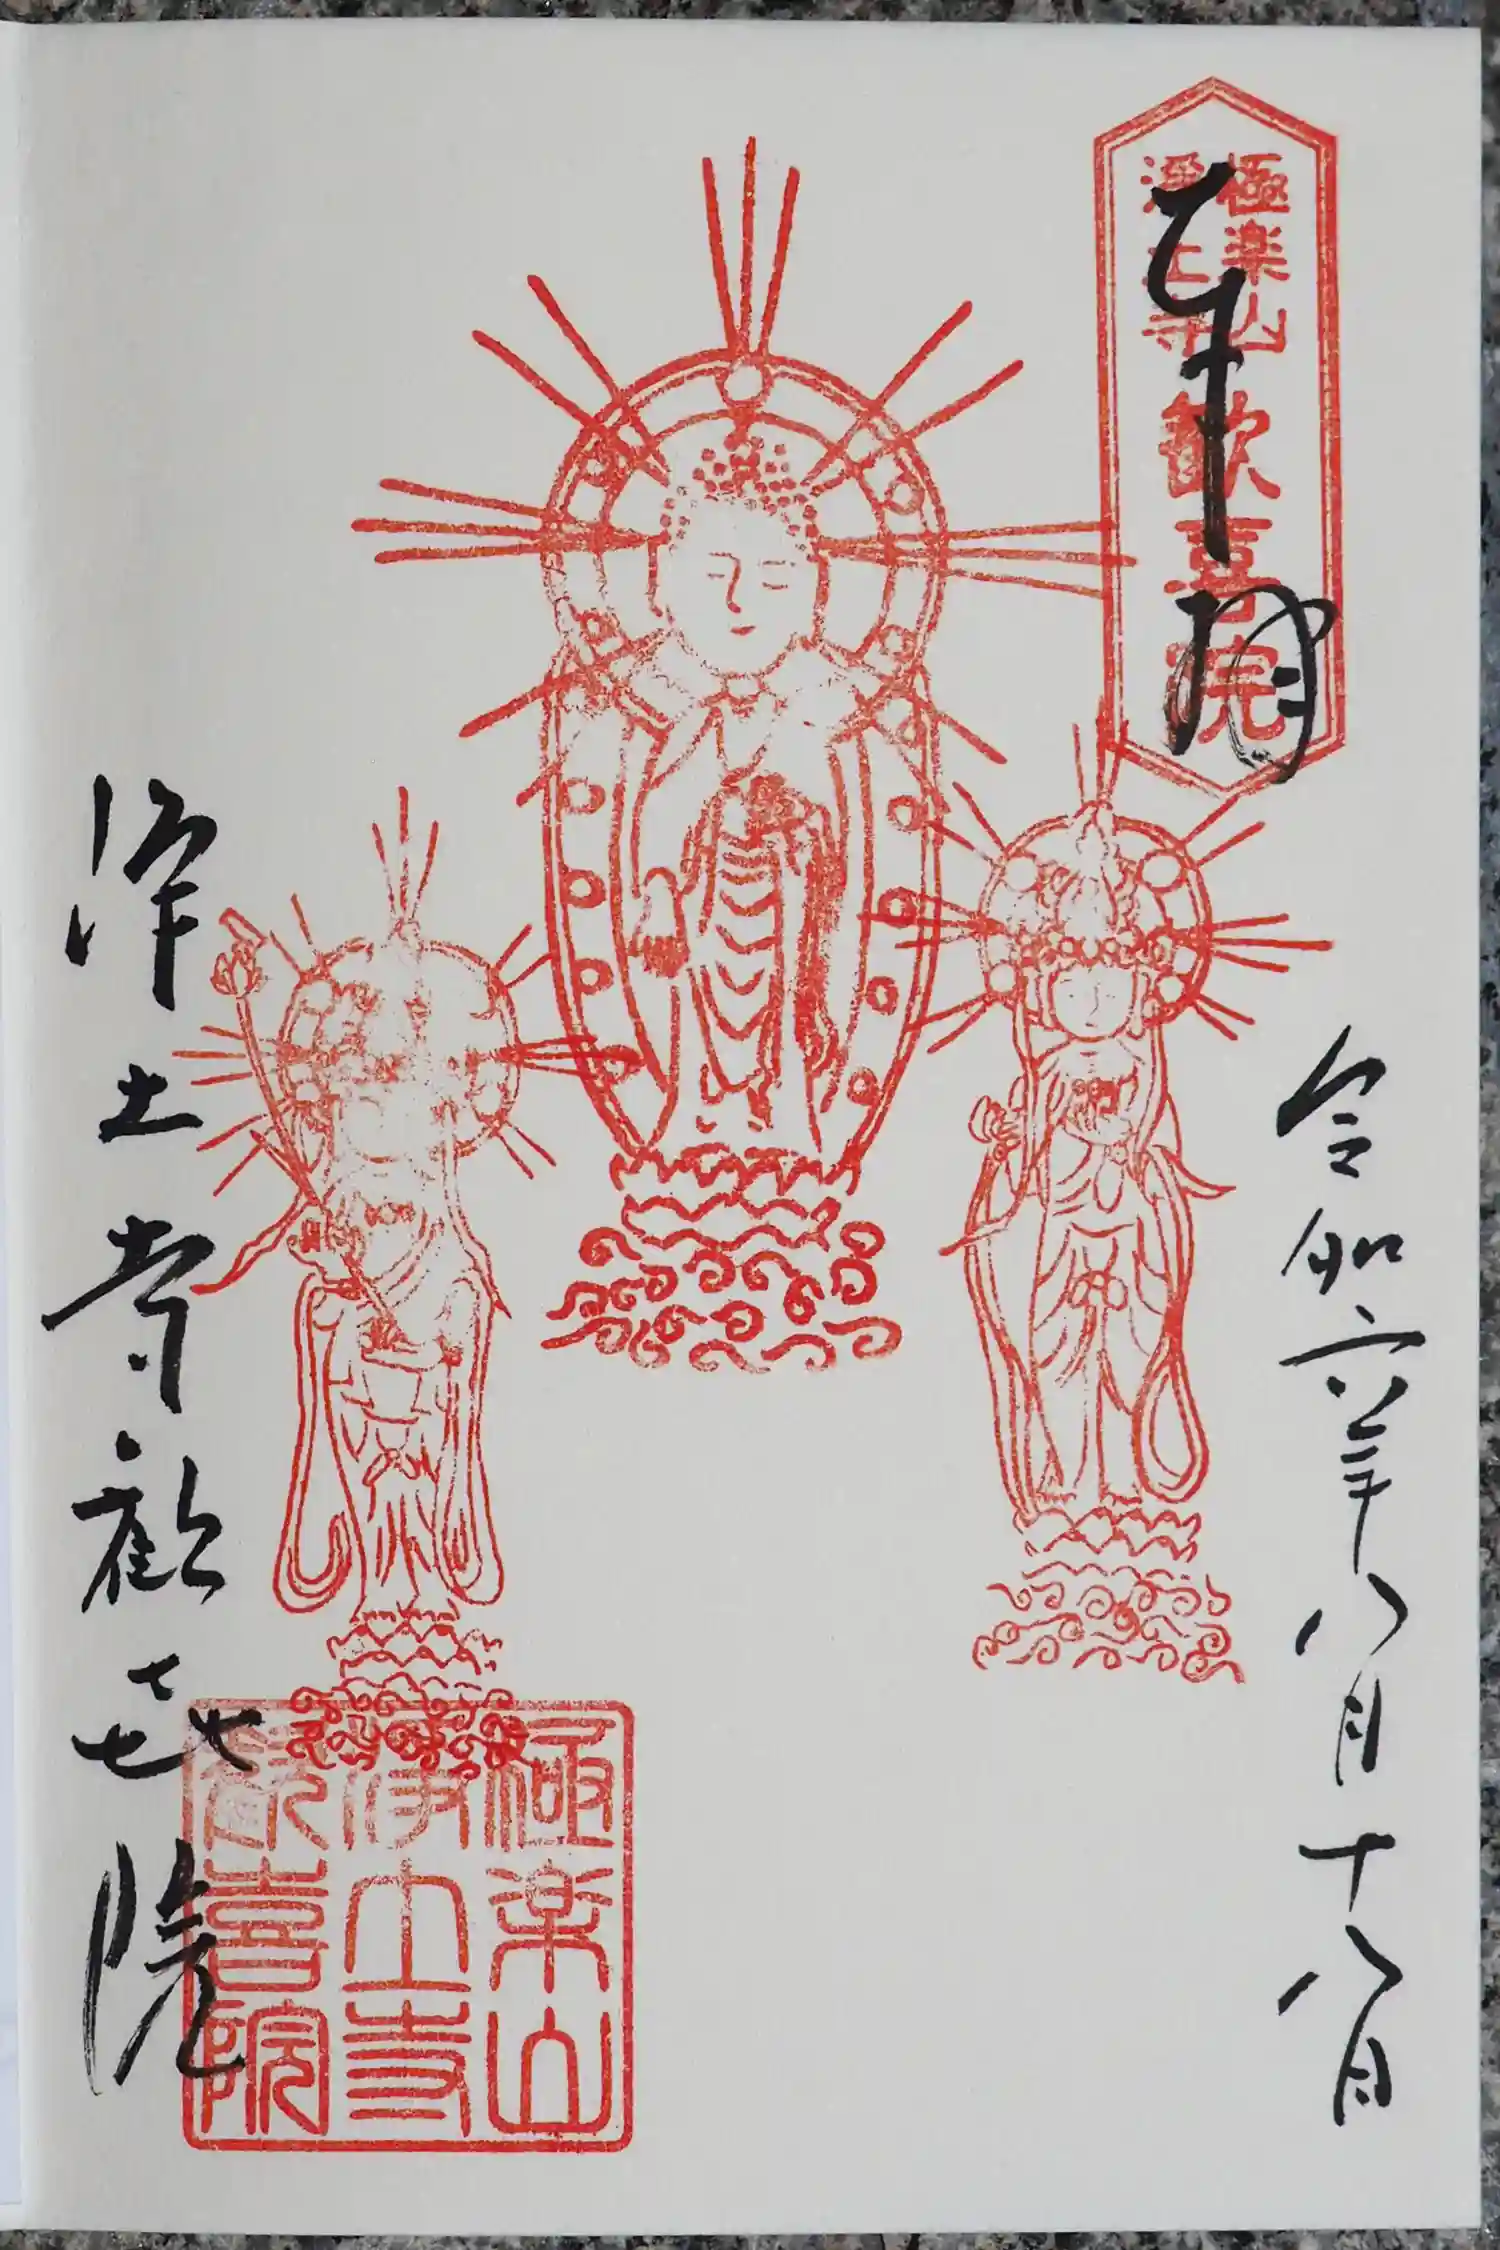 奉拝
極楽山
浄土寺
歓喜院
令和六年八月十八日
浄土寺歓㐂院
極楽山
浄土寺
歓喜院